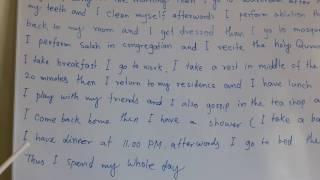 the morning then I go to washroom after
my teeth and I clean myself afterwords I perform ablution th
back in my room and I get dressed than I go to mosqu
I perform salah in congregation and I recite the holy Quran
I take breakfast I go to work, I take a rest in middle of the
20 minutes then I return to my residence and I have lunch
I play with my friends and I also gossip in the tea shop a
I come back home then I have a shower ( I take a ba
I have dinner at 11.00 PM. afterwords I go to bed the
Thus I spend my whole day